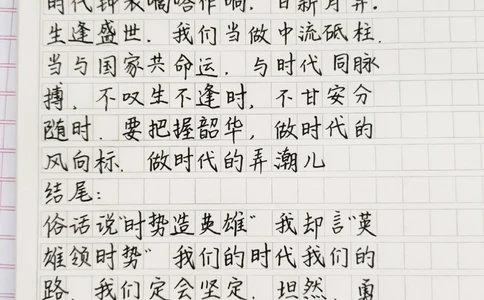 时代钟表嘀嗒作响.日新月异.
生逢盛世.我们当做中流砥柱.
当与国家共命运.与时代同脉
搏,不叹生不逢时,不甘安分
随时.要把握韶华,做时代的
风向标.做时代的弄潮儿
结尾:
俗话说"时势造英雄"我却言"英
雄领时势"我们的时代我们的
路,我们定会坚定,坦然,勇